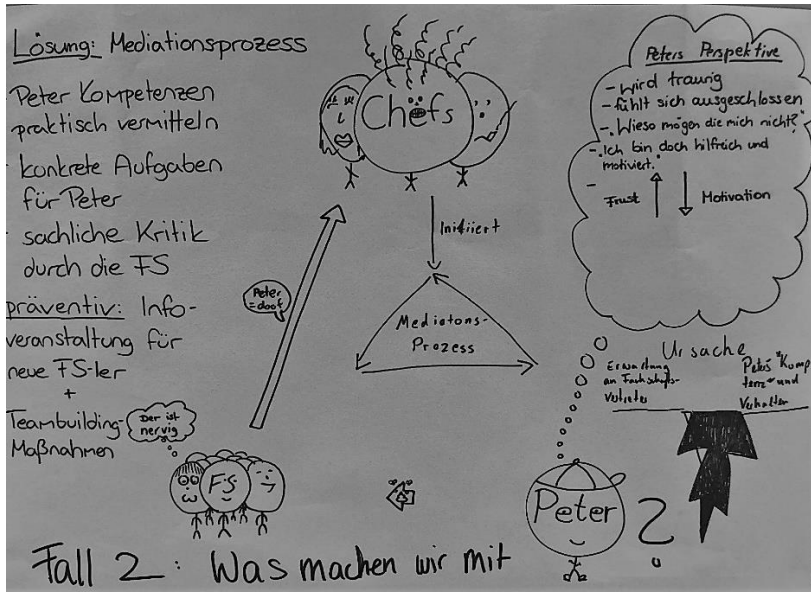 Lösung: Mediationsprozess
- Peter Kompetenzen
praktisch vermitteln
- konkrete Aufgaben
für Peter
- sachliche Kritik
durch die FS
präventiv: Info-
veranstaltung für
neue FS-ler
+
Teambuilding-
Maßnahmen
Chefs
Initiiert
Mediatons-
Prozess
Peter
=doof
Der ist
nervig
FS
Peters Perspektive
- wird traurig
- fühlt sich ausgeschlossen
- "Wieso mögen die mich nicht?"
- "Ich bin doch hilfreich und
motiviert."
- Frust ↑ ↓ Motivation
Ursache
Erwartung
an Fachschafts-
vertreter
Peters "Komp
tenz" und
Verhalten
Fall 2: Was machen wir mit
Peter ?